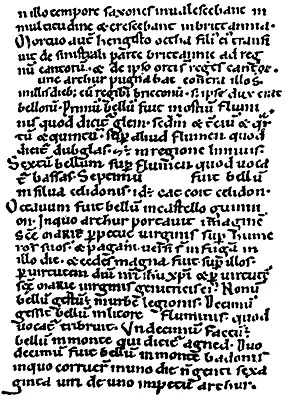 n illo tempore saxones inualescebant in
multitudine & crescebant in brittannia.
Mortuo aut̄ hengisto octha fili᷒ ei᷒ transi
uit de sinistrali parte brittanniae ad reg
nū cantorū. & de ipso orti s̄ reges cantor̄.
Tunc arthur pugnabat contra illos
in illis dieb᷒ cū regib᷒ brittonū. sꝫ ipse dux erat
bellorū. Primū bellū fuit in ostiū flumi
nis quod dicit᷑ glein. scd̄m & tciū & qr
tū & quintū. sup̄ aliud flumen quod
dicit᷑ dubglas. & ē in regione linnuis.
Sextū bellum sup̄ flumen quod uoca
t᷑ bassas. Septimū fuit bellū
in silua celidonis. id ē cat coit celidon.
Octauum fuit bellū in castello guinni
on. In quo arthur portauit imaginē
scē mariē ppetuę uirginis sup̄ hume
ros suos. & pagani uersi s̄ in fugā in
illo die. & cedes magna fuit sup̄ illos.
p uirtutem dn̄i nr̄i ihū xp̄i & p uirtutē
scē mariē uirginis genitricis ei᷒. Nonū
bellū gestū ē in urbe legionis. Decimū
gessit bellū in litore fluminis quod
uocat᷑ tribruit. Undecimū factū ē
bellū in monte qui dicit᷑ agned. Duo
decimū fuit bellū in monte badonis
in quo corruer̄ in uno die nn̄genti sexa
ginta uiri de uno impetu arthur.